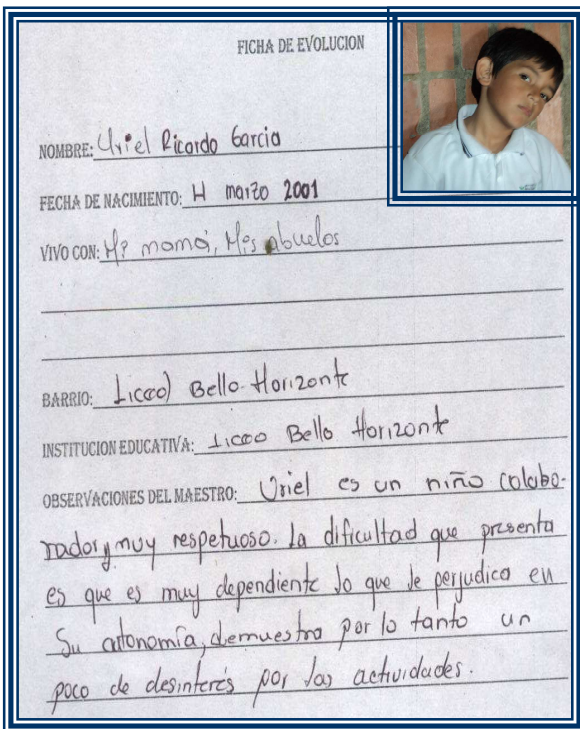 FICHA DE EVOLUCION
NOMBRE: Uriel Ricardo Garcia
FECHA DE NACIMIENTO: marzo 2001
VIVO CON: Mi mamá, Mis abuelos
BARRIO: Liceo) Bello Horizonte
INSTITUCION EDUCATIVA: Liceo Bello Horizonte
OBSERVACIONES DEL MAESTRO: Uriel es un niño colabo-
rador y muy respetuoso. La dificultad que presenta
es que es muy dependiente lo que le perjudica en
su autonomía, demuestra por lo tanto un
poco de desinterés por las actividades.